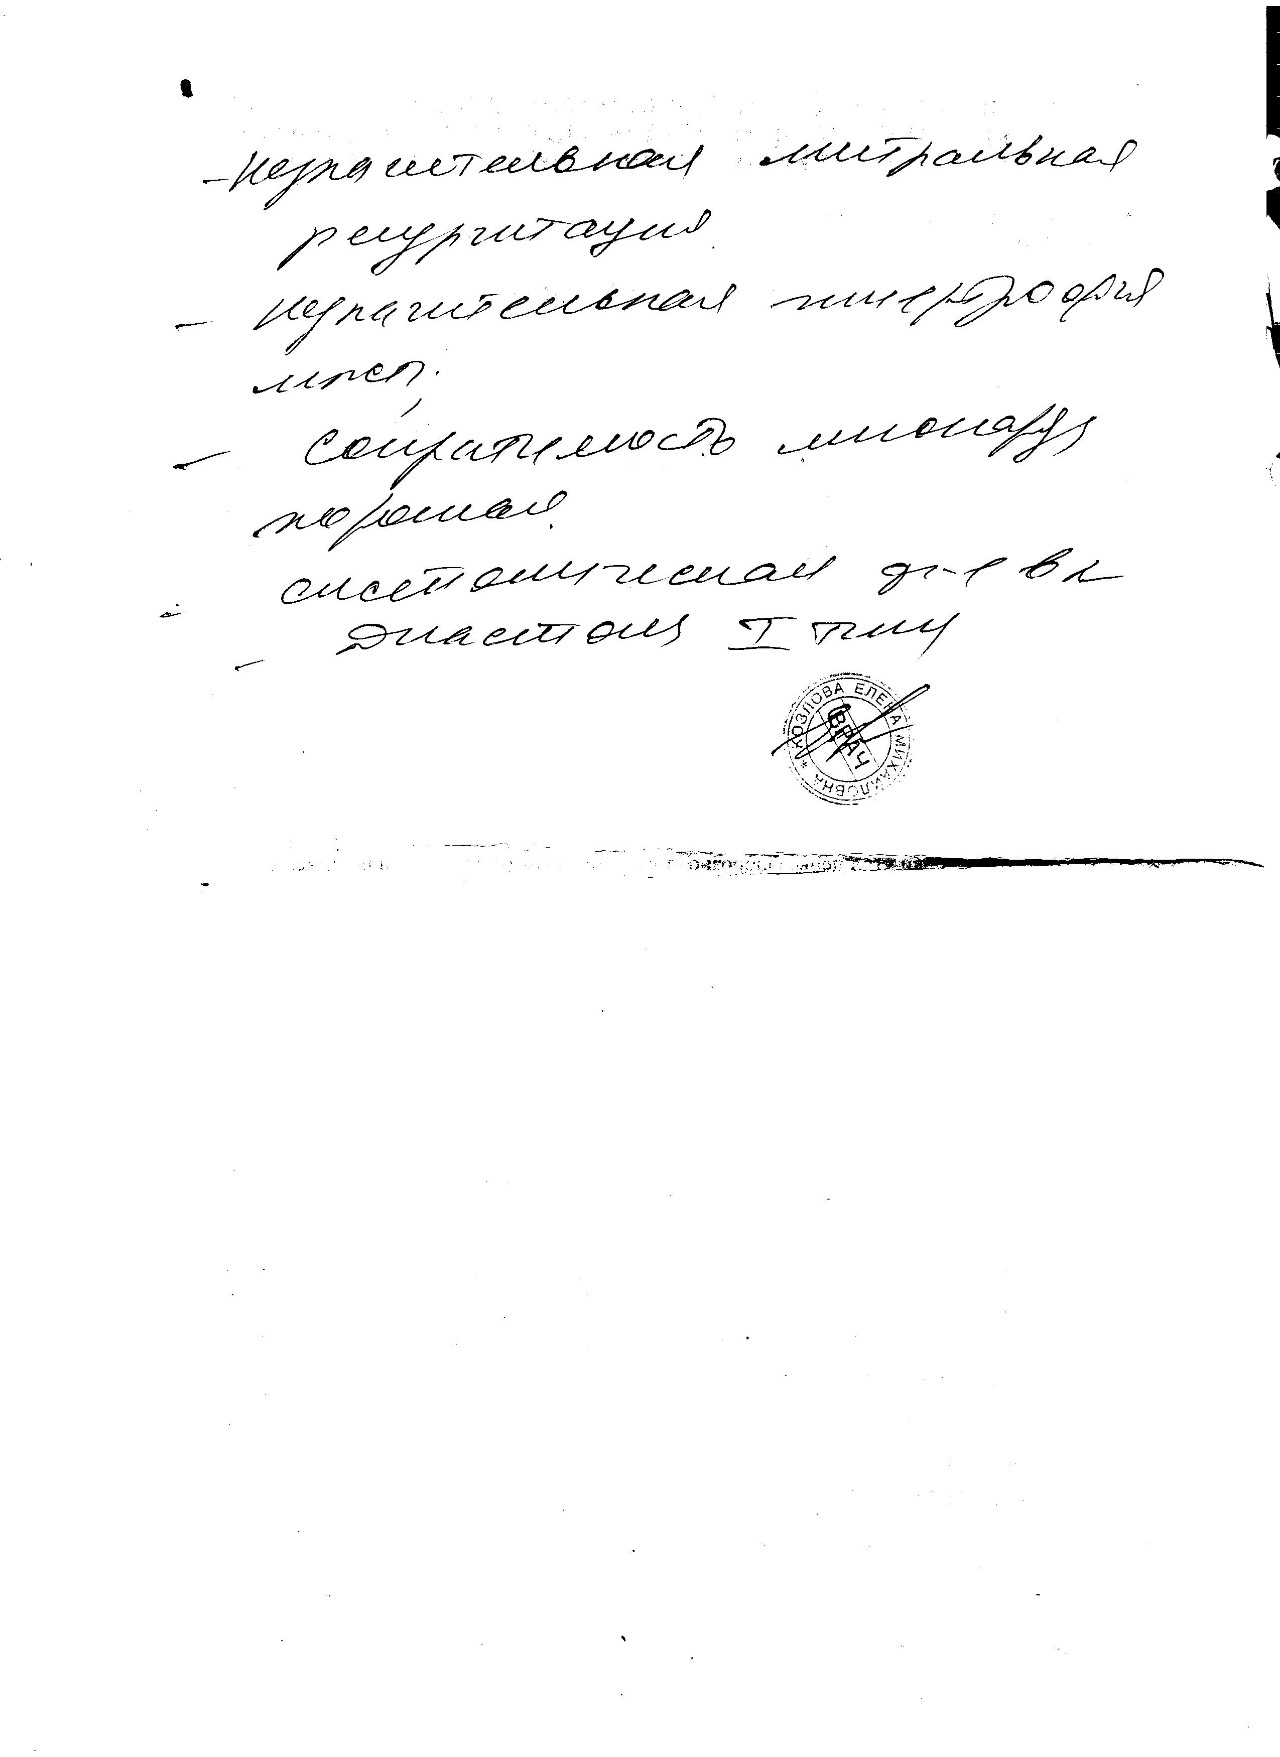 - незначительная митральная
регургитация
- незначительная гипертрофия
мжп,
- сократимость миокарда
хорошая
- систолическая ф-я в н
- диастола I тип
КОЗЛОВА ЕЛЕНА МИХАЙЛОВНА *
ВРАЧ